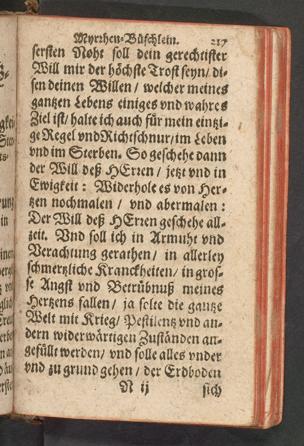 Myrrhen-Büschlein. 217
sersten Noht soll dein gerechtister
Will mir der höchste Trost seyn/ di-
sen deinen Willen / welcher meines
gantzen Lebens einiges vnd wahres
Ziel ist/ halte ich auch für mein eintzi-
ge Regel vnd Richtschnur/ im Leben
vnd im Sterben. So geschehe dann
der Will deß HErren / jetz vnd in
Ewigkeit : Widerhole es von Her-
tzen nochmalen / vnd abermalen :
Der Will deß HErren geschehe all-
zeit. Vnd soll ich in Armuht vnd
Verachtung gerathen / in allerley
schmertzliche Kranckheiten/ in gros-
se Angst vnd Betrübnuß meines
Hertzens fallen / ja solte die gantze
Welt mit Krieg/ Pestilentz vnd an-
dern widerwärtigen Zuständen an-
gefüllt werden/ vnd solle alles vnder
vnd zu grund gehen / der Erdboden
N ij sich